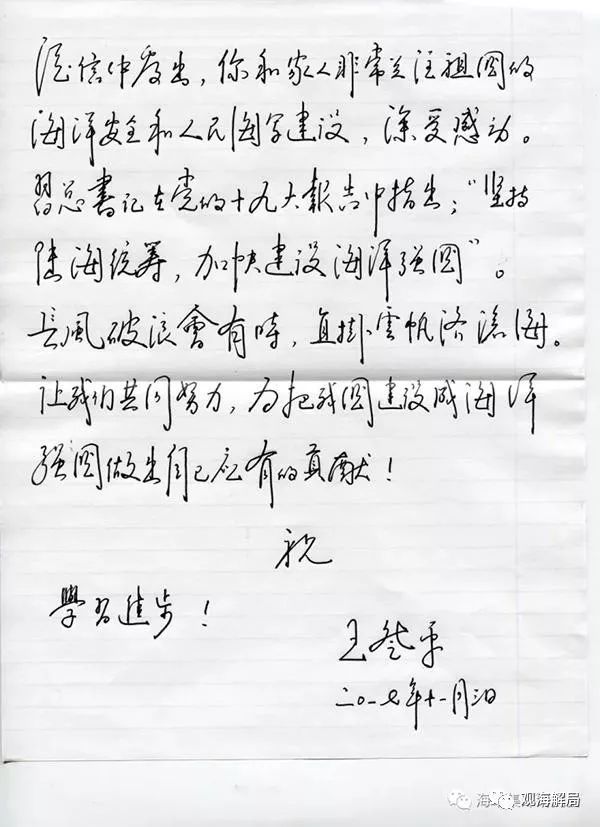 從信中看出，你和家人非常关注祖國的
海洋安全和人民海军建设，深受感动。
習总書记在党的十九大報告中指出："坚持
陆海统筹，加快建设海洋强國"。
長風破浪會有時，直掛雲帆济滄海。
让我们共同努力，为把我國建设成海洋
强國做出自己应有的貢献！
祝
學習進步！
王登平
二〇一七年十一月三日
观海解局